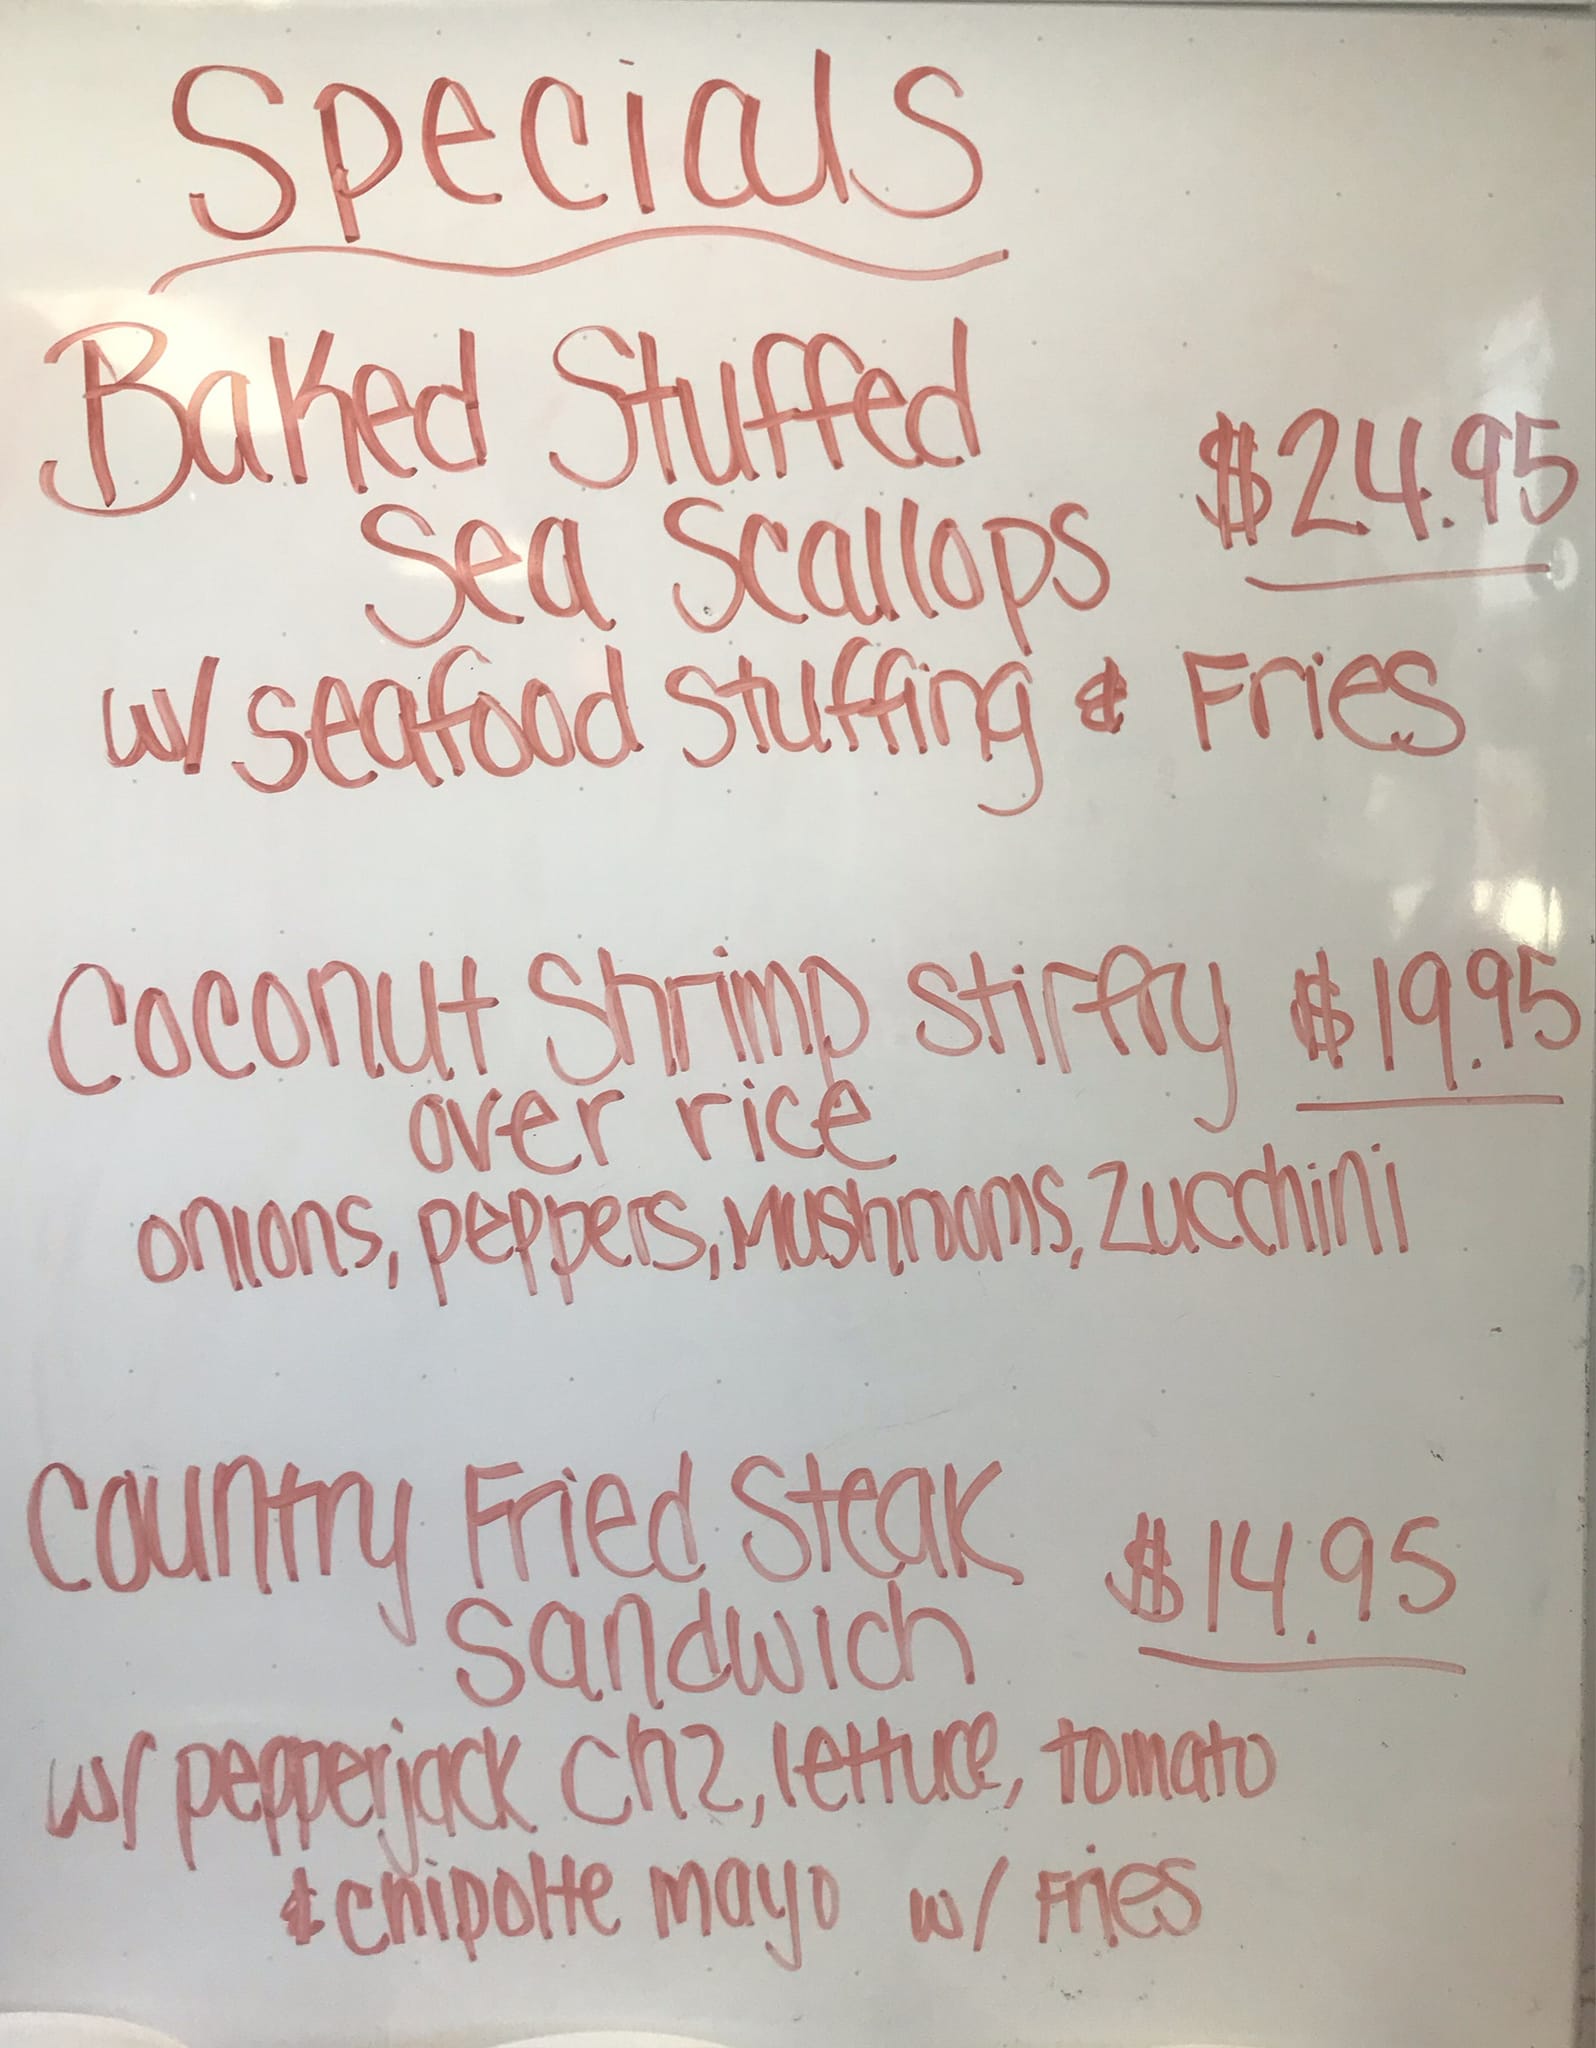 Specials
Baked Stuffed
Sea Scallops $24.95
w/ seafood stuffing & Fries
Coconut Shrimp Stirfry $19.95
over rice
onions, peppers, Mushrooms, Zucchini
Country Fried Steak
Sandwich $14.95
w/ pepperjack chz, lettuce, tomato
& chipolte mayo w/ Fries